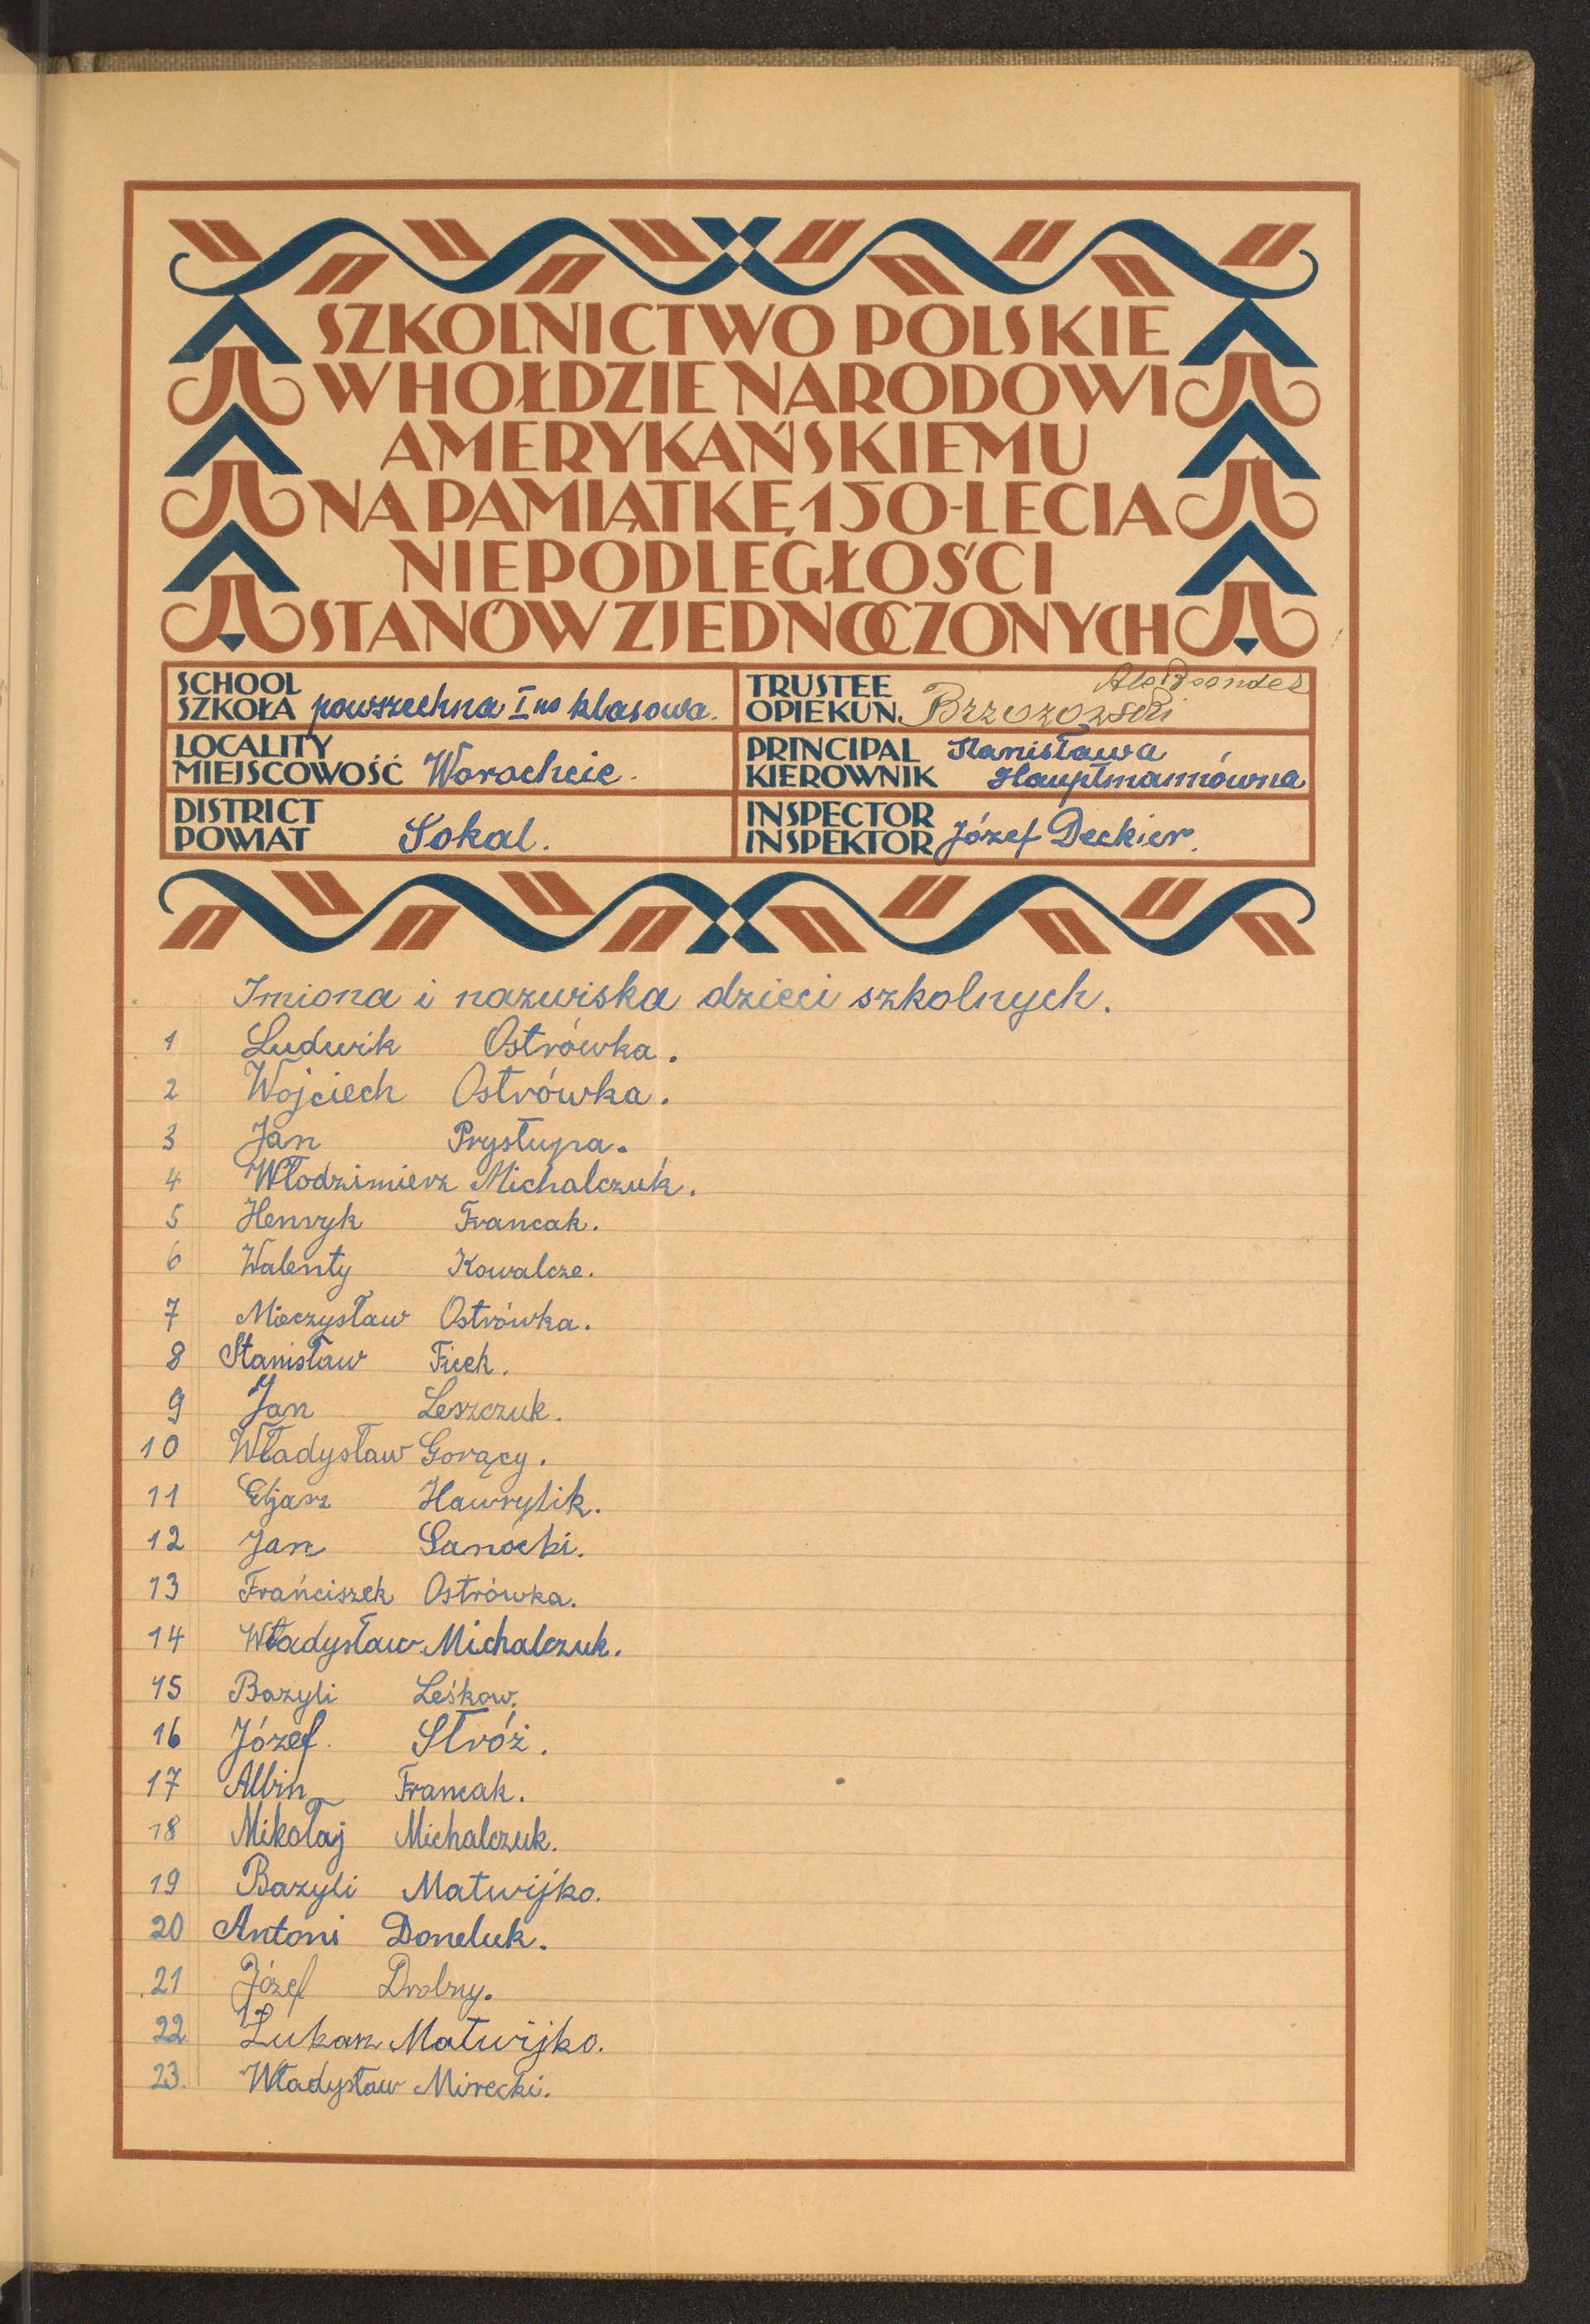 SZKOLNICTWO POLSKIE
W HOŁDZIE NARODOWI
AMERYKAŃSKIEMU
NA PAMIĄTKĘ 150-LECIA
NIEPODLEGŁOŚCI
STANÓW ZJEDNOCZONYCH
SCHOOL
SZKOŁA powszechna I no klasowa.
LOCALITY
MIEJSCOWOŚĆ Worochcie.
DISTRICT
POWIAT Sokal.
TRUSTEE Aleksander
OPIEKUN Brzozowski
PRINCIPAL Stanisława
KIEROWNIK Hauptmannówna
INSPECTOR
INSPEKTOR Józef Deckier.
Imiona i nazwiska dzieci szkolnych.
1 Ludwik Ostrówka.
2 Wojciech Ostrówka.
3 Jan Prystupa.
4 Włodzimierz Michalczuk.
5 Henryk Francak.
6 Walenty Kowalcze.
7 Mieczysław Ostrówka.
8 Stanisław Ficek.
9 Jan Leszczuk.
10 Władysław Gorący.
11 Eljasz Hawrylik.
12 Jan Sanocki.
13 Frańciszek Ostrówka.
14 Władysław Michalczuk.
15 Bazyli Leśkow.
16 Józef Stróż.
17 Albin Francak.
18 Mikołaj Michalczuk.
19 Bazyli Matwijko.
20 Antoni Doneluk.
21 Józef Drobny.
22 Łukasz Matwijko.
23. Władysław Mirecki.